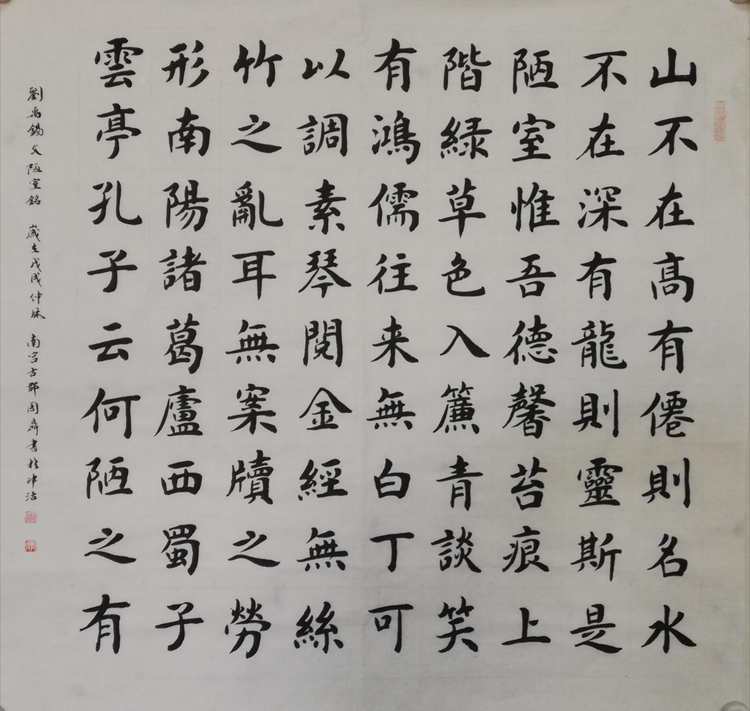 山不在髙有僊則名水
不在深有龍則靈斯是
陋室惟吾德馨苔痕上
階緑草色入簾青談笑
有鴻儒往来無白丁可
以調素琴閱金經無絲
竹之亂耳無案牘之勞
形南陽諸葛廬西蜀子
雲亭孔子云何陋之有
劉禹錫文陋室銘 歲在戊戌仲秋 南宮古 書於津沽